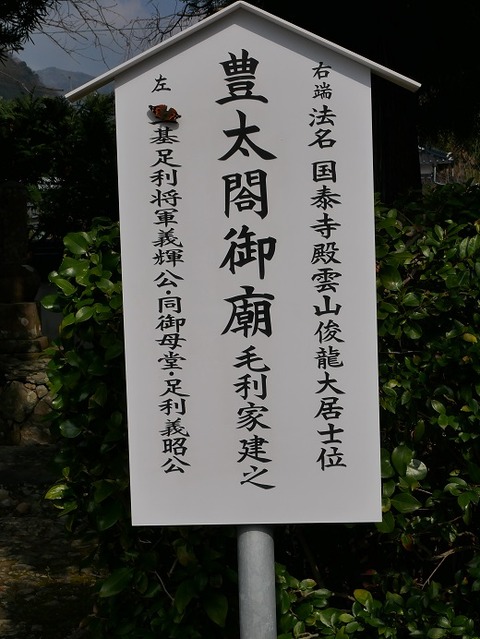 右端 法名 国泰寺殿雲山俊龍大居士位
豊太閤御廟 毛利家建之
左 基足利将軍義輝公・同御母堂・足利義昭公